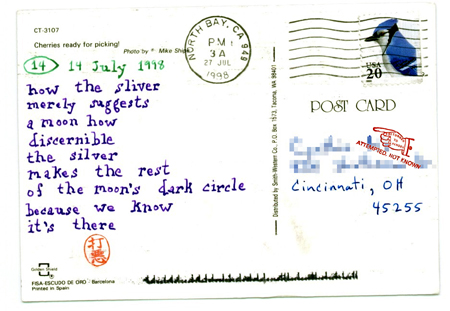 CT-3107
Cherries ready for picking!
Photo by © Mike
14 14 July 1998
how the sliver
merely suggests
a moon how
discernible
the silver
makes the rest
of the moon's dark circle
because we know
it's there
Golden Shield
FISA-ESCUDO DE ORO - Barcelona
Printed in Spain
NORTH BAY, CA 949
PM
3A
27 JUL
1998
USA
20
POST CARD
ATTEMPTED, NOT KNOWN
Cincinnati, OH
45255
Distributed by Smith-Western Co., P.O. Box 1573, Tacoma, WA 98401